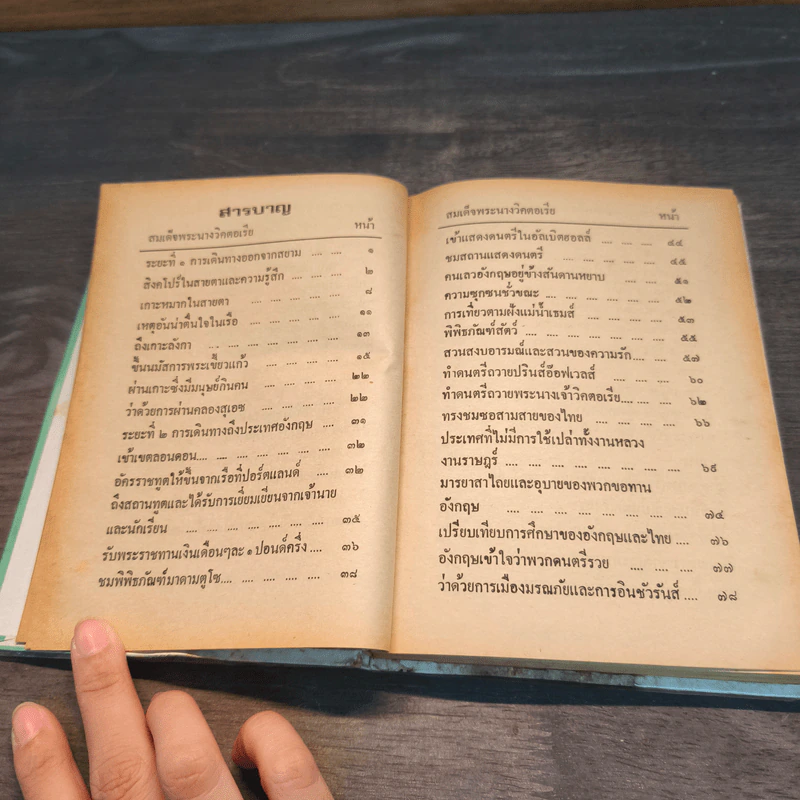 สารบาญ
สมเด็จพระนางวิคตอเรีย หน้า
ระยะที่ ๑ การเดินทางออกจากสยาม .... .... ๑
สิงคโปร์ในสายตาและความรู้สึก .... .... ๒
เกาะหมากในสายตา .... .... .... .... ๘
เหตุอันน่าตื่นใจในเรือ .... .... .... .... ๑๑
ถึงเกาะลังกา .... .... .... .... .... ๑๓
ขึ้นนมัสการพระเขี้ยวแก้ว .... .... .... ๑๕
ผ่านเกาะซึ่งมีมนุษย์กินคน .... .... .... ๒๒
ว่าด้วยการผ่านคลองสุเอซ .... .... .... .... ๒๒
ระยะที่ ๒ การเดินทางถึงประเทศอังกฤษ .... .... ๓๑
เข้าเขตลอนดอน.... .... .... .... .... ๓๒
อัครราชทูตให้ขึ้นจากเรือที่ปอร์ตแลนด์ .... .... ๓๒
ถึงสถานทูตและได้รับการเยี่ยมเยียนจากเจ้านาย
และนักเรียน .... .... .... .... .... .... ๓๕
รับพระราชทานเงินเดือนๆละ ๑ ปอนด์ครึ่ง .... ๓๖
ชมพิพิธภัณฑ์มาดามตูโซ.... .... .... .... ๓๘
สมเด็จพระนางวิคตอเรีย หน้า
เข้าแสดงดนตรีในอัลเบิตฮอลล์ .... .... .... ๔๔
ชมสถานแสดงดนตรี .... .... .... .... ๔๕
คนเลวอังกฤษอยู่ข้างสันดานหยาบ .... .... ๕๑
ความซุกซนชั่วขณะ .... .... .... .... .... .... ๕๒
การเที่ยวตามฝั่งแม่น้ำเธมส์ .... .... .... .... ๕๓
พิพิธภัณฑ์สัตว์ .... .... .... .... .... .... .... ๕๕
สวนสงบอารมณ์และสวนของความรัก.... .... ๕๗
ทำดนตรีถวายปรินส์อ๊อฟเวลส์ .... .... .... ๖๐
ทำดนตรีถวายพระนางเจ้าวิคตอเรีย.... .... .... ๖๒
ทรงชมซอสามสายของไทย .... .... .... .... ๖๖
ประเทศที่ไม่มีการใช้เปล่าทั้งงานหลวง
งานราษฎร์ .... .... .... .... .... .... .... ๖๙
มารยาสาไถยและอุบายของพวกขอทาน
อังกฤษ .... .... .... .... .... .... .... ๗๔
เปรียบเทียบการศึกษาของอังกฤษและไทย .... ๗๖
อังกฤษเข้าใจว่าพวกดนตรีรวย .... .... .... ๗๗
ว่าด้วยการเมืองมรณภัยและการอินชัวรันส์ .... ๗๘